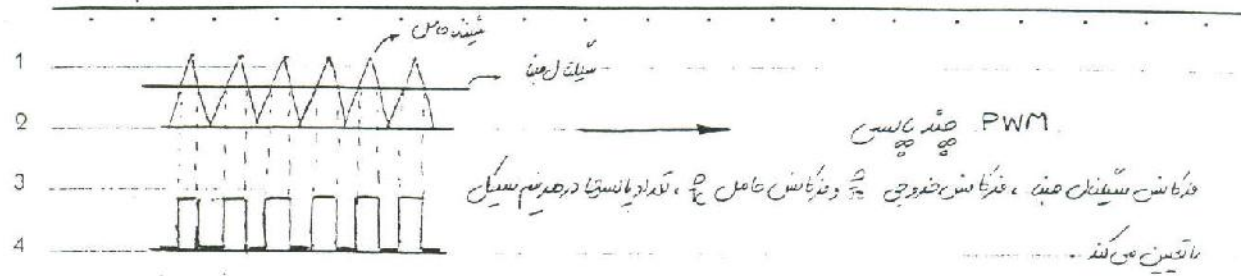 سیگنال حامل
سیگنال مبنا
1
2
3
4
PWM چند پالسی
فرکانس سیگنال مبنا ، فرکانس خروجی f₀ و فرکانس حامل f_c ، تعداد پالسها در هر نیم سیکل
را تعیین می کند .